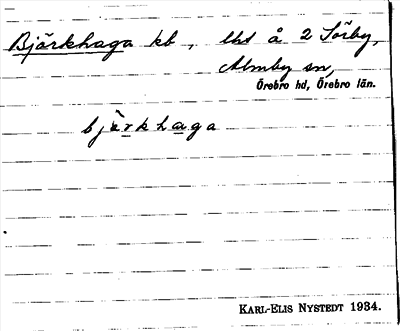 Björkhaga kb, lht å 2 Sörby,
Almby sn,
Örebro hd, Örebro län.
bjö̀rkhaga
KARL-ELIS NYSTEDT 1934.